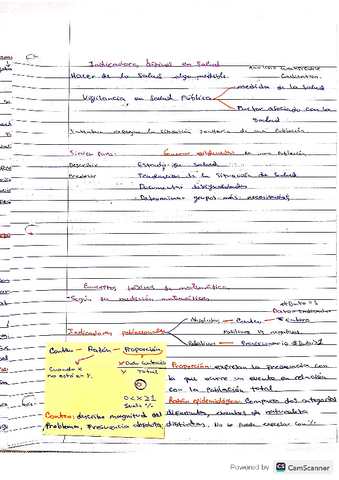 Indicadores básicos en Salud
Hacer de la Salud algo medible.
Análisis Cuantitativo
Cualitativo.
medida de la Salud
Vigilancia en Salud Pública
Factor asociado con la Salud
Intentan la situación Sanitaria de una Población
Sirven para: Generar evidencias en una Población
Describir Estado de Salud
Predecir Tendencias de la Situación de Salud
Documentar desigualdades
Determinar grupos más necesitados
Conceptos básicos de matemática
Según su medición matemáticas
#Dato = 1
Dato = Indicador
Indicadores poblacionales
Absolutos Conteo Entero
Positivos y negativos
Relativos
Conteo - Razón - Proporción
Cuando x no está en y.
X Dato Contado
Y Total
0<x≥1
Suele %
Proporción: expresan la frecuencia con la que ocurre un evento en relación con la población total.
Razón epidemiológica: Compara dos categorías
Conteo: describe magnitud del
Problema, Frecuencia absoluta, distintas. No se puede expresar con %
Powered by CS CamScanner